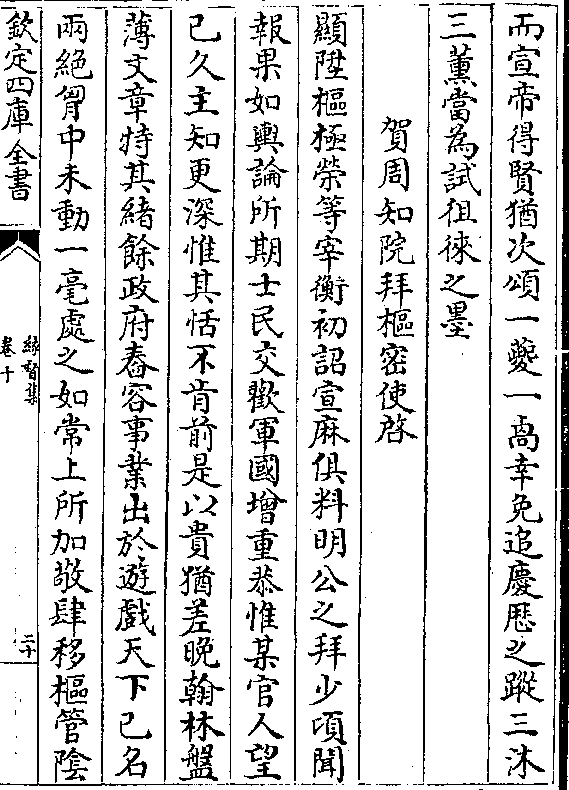 而宣帝得賢猶次頌一夔一卨幸免追慶厯之蹤三沐
三薰當為試徂徠之墨
賀周知院拜樞宻使啓
顯陞樞極榮等宰衡初詔宣麻俱料明公之拜少頃聞
報果如輿論所期士民交歡軍國增重恭惟某官人望
已久主知更深惟其恬不肯前是以貴猶差晚翰林盤
薄文章特其緒餘政府舂容事業出於遊戲天下已名
兩絶胷中未動一毫處之如常上所加敬肆移樞管陰
欽定四庫全書
緣督集
卷十
二十